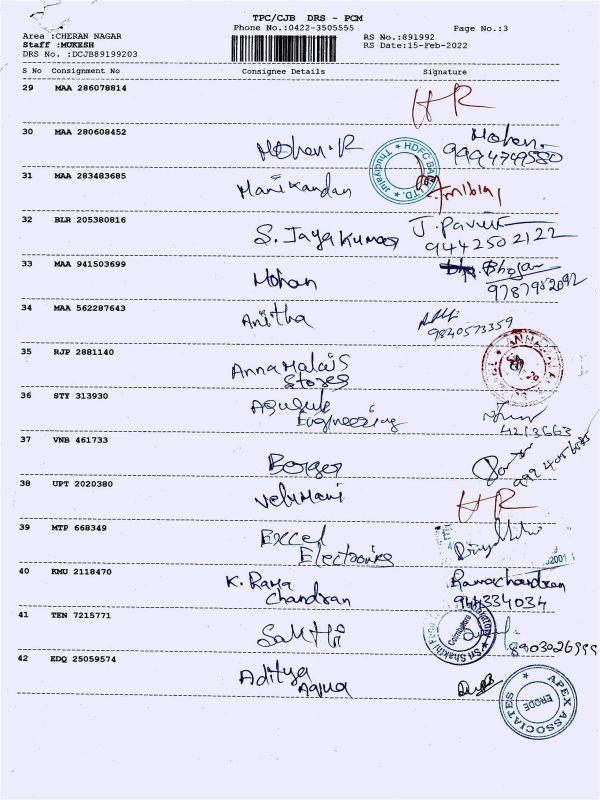 TPC/CJB DRS - PCM
Phone No.:0422-3505555 Page No.:3
Area :CHERAN NAGAR RS No.:891992
Staff :MUKESH RS Date:15-Feb-2022
DRS No. :DCJB89199203
S No Consignment No Consignee Details Signature
29 MAA 286078814 HR
30 MAA 280608452 Mohan.R Mohan.
HDFC BANK LTD. 9994749580
31 MAA 283483685 Manikandan
32 BLR 205380816 S. Jayakumar J. Pavit
9442502122
33 MAA 941503699 Mohan Bhojan
9787952092
34 MAA 562287643 Anitha
9840573359
35 RJP 2881140 Annamalais
Stores
36 STY 313930
Engineering 4213663
37 VNB 461733 Berger
38 UPT 2020380 Velumani HR
39 MTP 668349 Excel
Electronics
40 KMU 2118470 K. Rama Ramachandran
Chandran 944334034
41 TEN 7215771 Sakthi
8903026999
42 EDQ 25059574 Aditya
Aqua
APEX ASSOCIATES
ERODE